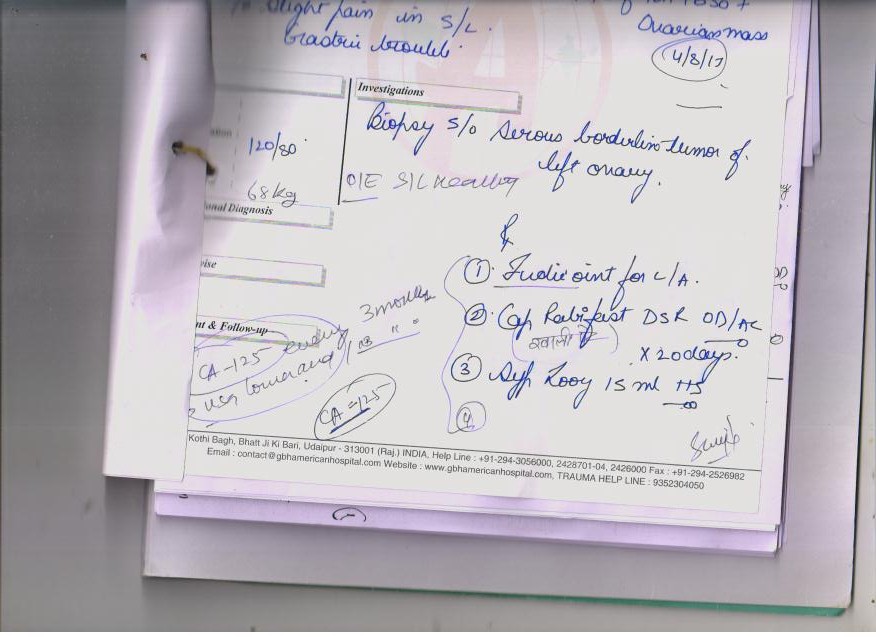 Slight pain in S/L.
Gastric trouble.
Ovarian mass
4/8/17
Investigations
Biopsy s/o serous borderline tumor of
left ovary.
120/80
68 kg
O/E S/L healthy
onal Diagnosis
ise
① oint for L/A.
② Cap Rabifast DSR OD/AC
खाली पेट
X 20 days.
③ Syp Looy 15 ml HS
④
nt & Follow-up
CA-125 every 3 months
USG lower abd
CA-125
Kothi Bagh, Bhatt Ji Ki Bari, Udaipur - 313001 (Raj.) INDIA, Help Line : +91-294-3056000, 2428701-04, 2426000 Fax : +91-294-2526982
Email : contact@gbhamericanhospital.com Website : www.gbhamericanhospital.com, TRAUMA HELP LINE : 9352304050